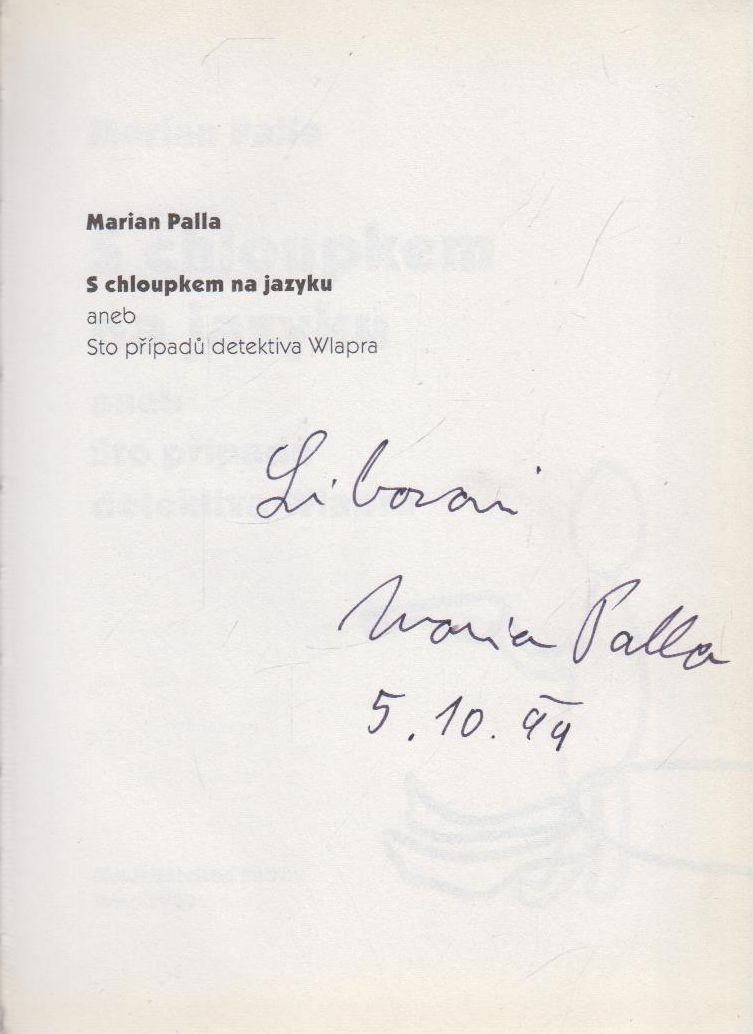 Marian Palla
S chloupkem na jazyku
aneb
Sto případů detektiva Wlapra
Liborovi
Marian Palla
5. 10. 99